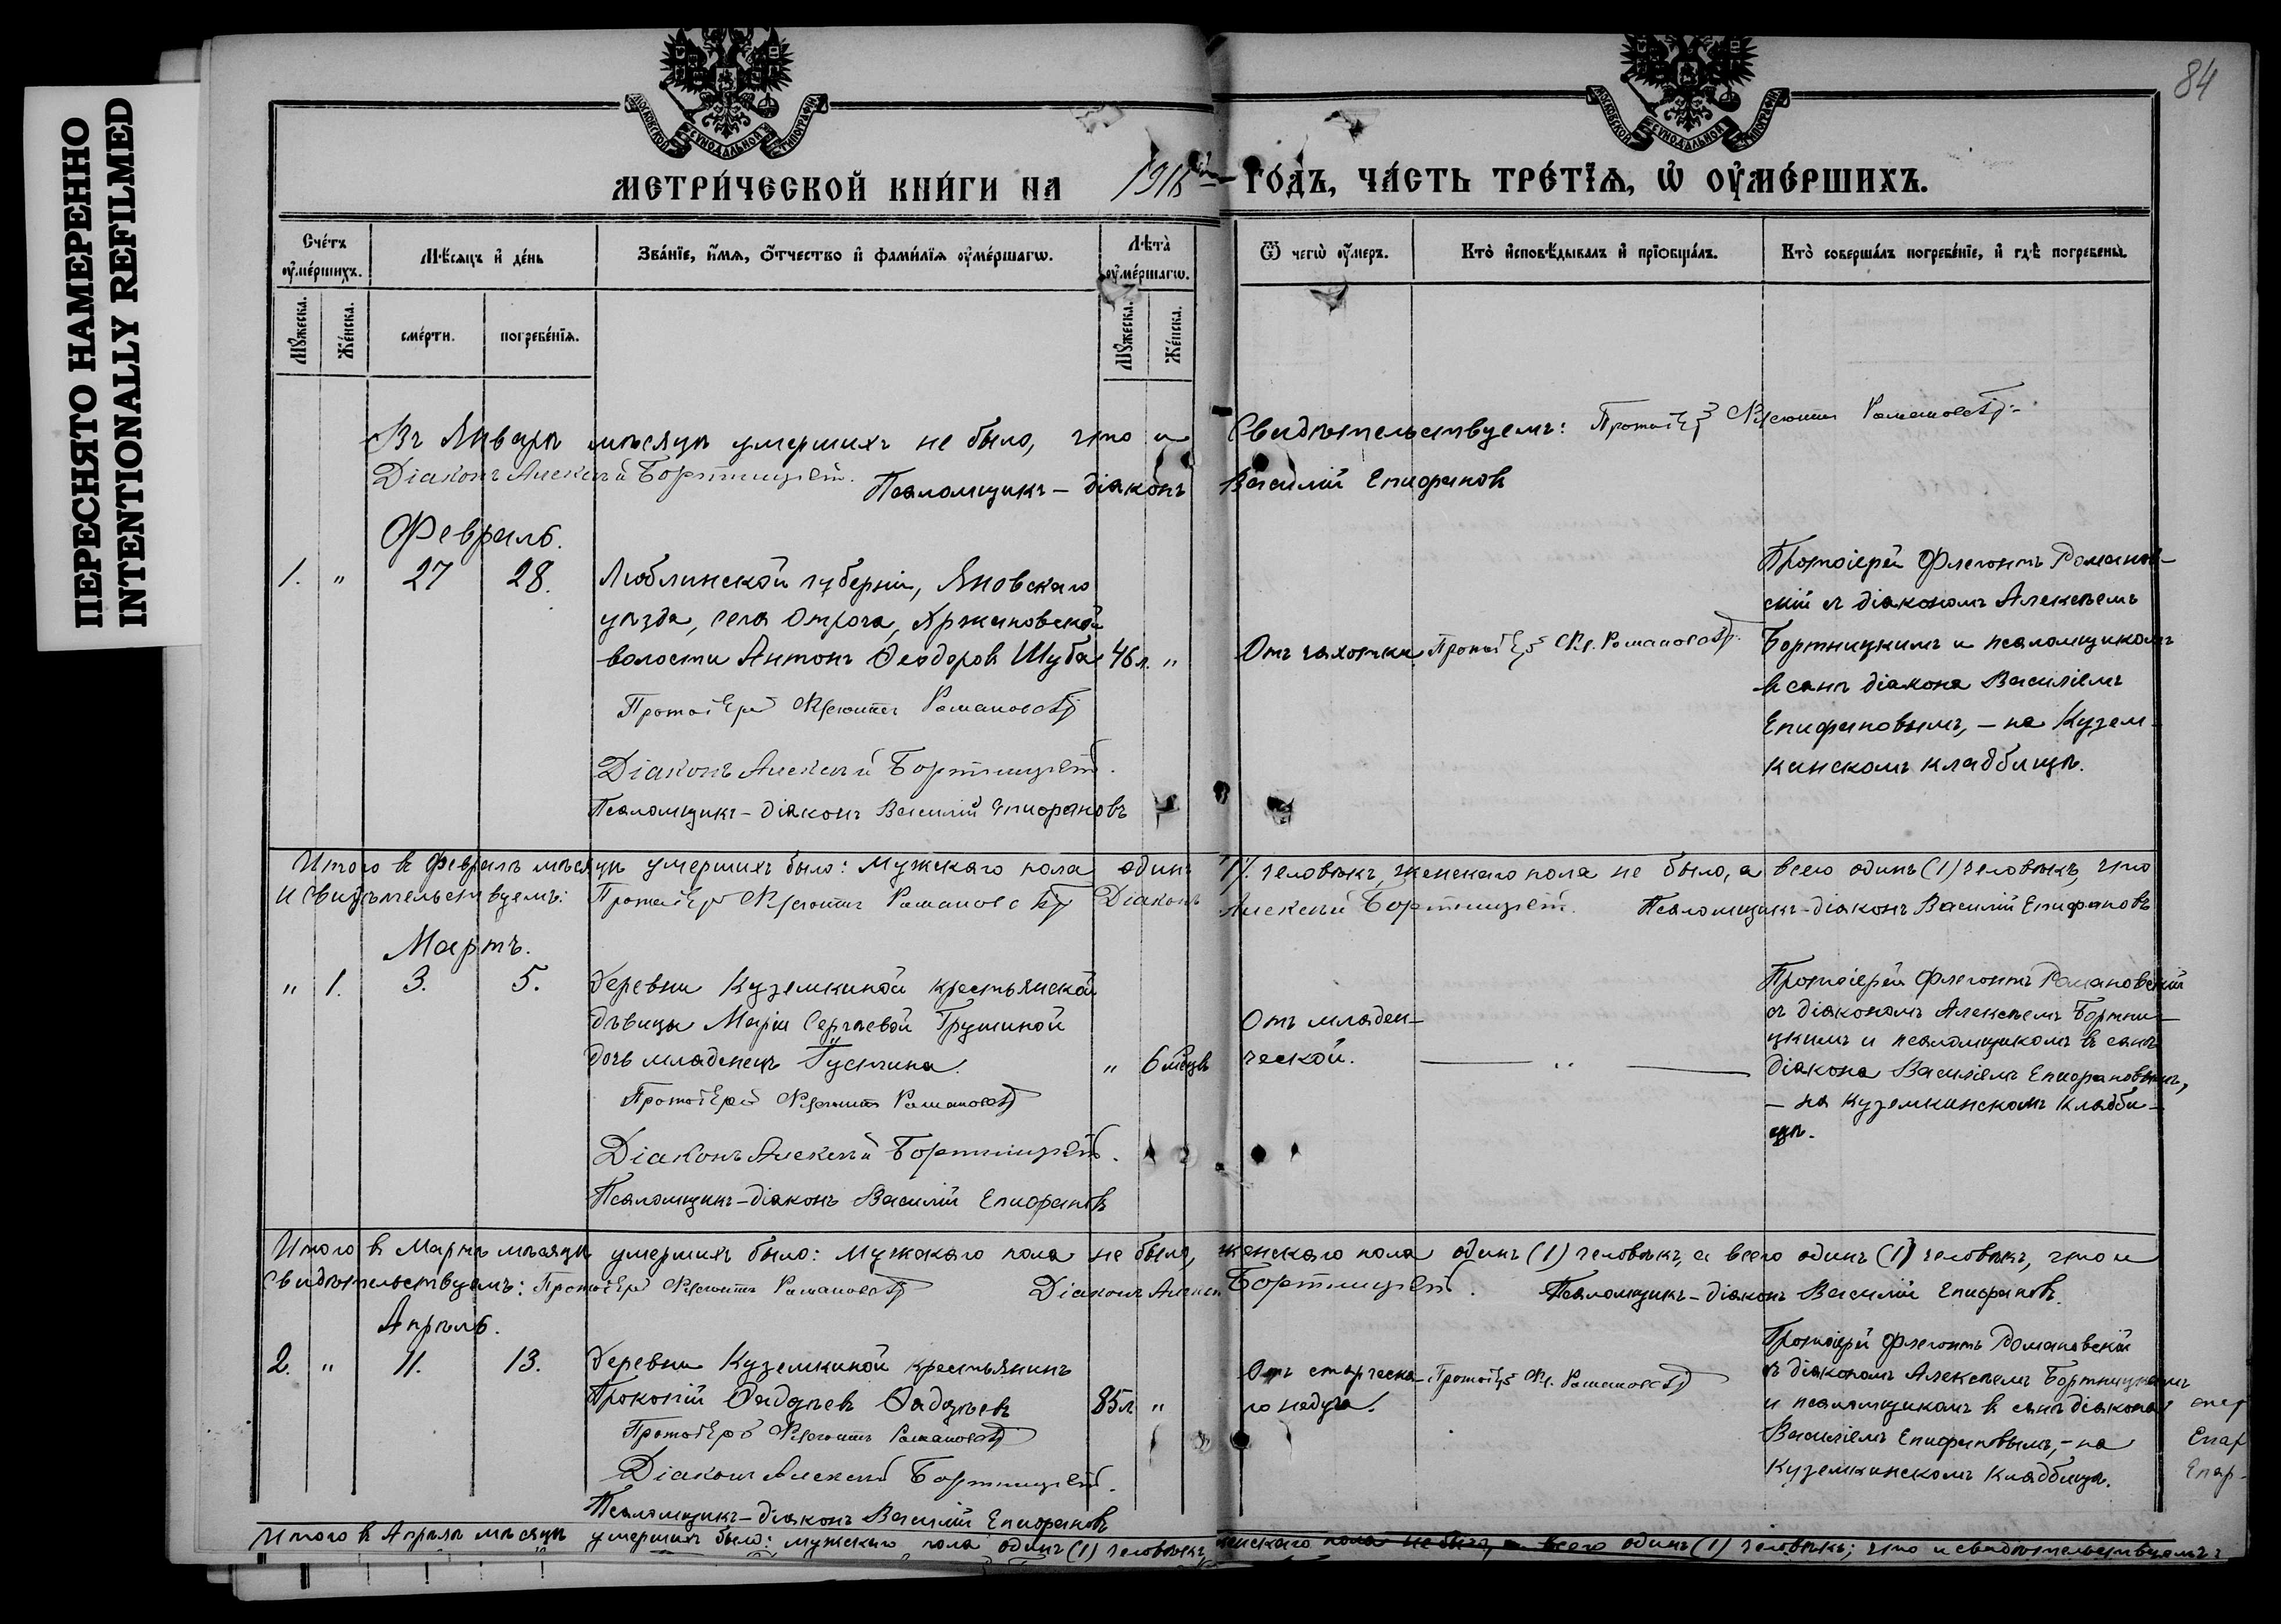 ПЕРЕСНЯТО НАМЕРЕННО
INTENTIONALLY REFILMED
84
МОСКОВСКОЙ СУНОДАЛЬНОЙ ТИПОГРАФІИ
МОСКОВСКОЙ СУНОДАЛЬНОЙ ТИПОГРАФІИ
МЕТРИ́ЧЕСКОЙ КНИ́ГИ НА 1918 ГО́ДЪ, ЧА́СТЬ ТРЕ́ТЇѦ, Ѡ҆ ОУ҆МЕ́РШИХЪ.
Сче́тъ оу҆ме́ршихъ.
Мѣ́сяцъ и҆ де́нь
Зва́нїе, и҆́мя, ѻ҆́тчество и҆ фами́лїя оу҆ме́ршагѡ.
Лѣта̀ оу҆ме́ршагѡ.
Ѿ чегѡ̀ оу҆́меръ.
Кто̀ и҆сповѣ́дывалъ и҆ прїѻбща́лъ.
Кто̀ соверша́лъ погребе́нїе, и҆ гдѣ̀ погребены̀.
Мꙋ́жеска.
Же́нска.
сме́рти.
погребе́нїя.
Мꙋ́жеска.
Же́нска.
Въ Январѣ мѣсяцѣ умершихъ не было, что и Свидѣтельствуемъ: Протоіерей Флегонтъ Романовскій
Діаконъ Алексѣй Бортницкій. Псаломщикъ - діаконъ Василій Епифановъ
Февраль.
1. " 27 28.
Люблинской губерніи, Яновскаго
уѣзда, села Отроча, Хржановской
волости Антонъ Ѳеодоровъ Шуба 46 л. "
Протоіерей Флегонтъ Романовскій
Діаконъ Алексѣй Бортницкій.
Псаломщикъ - діаконъ Василій Епифановъ
Отъ чахотки
Протоіерей Фл. Романовскій
Протоіерей Флегонтъ Романов-
скій съ діакономъ Алексѣемъ
Бортницкимъ и псаломщикомъ
въ санѣ діакона Василіемъ
Епифановымъ, - на Кузем-
кинскомъ кладбищѣ.
Итого въ Февралѣ мѣсяцѣ умершихъ было: мужскаго пола одинъ /1/ человѣкъ, женскаго пола не было, а всего одинъ (1) человѣкъ, что
и Свидѣтельствуемъ: Протоіерей Флегонтъ Романовскій Діаконъ Алексѣй Бортницкій. Псаломщикъ - діаконъ Василій Епифановъ
Мартъ.
" 1. 3. 5.
Деревни Куземкиной крестьянской
дѣвицы Маріи Сергѣевой Грушиной
дочь младенецъ Іустина. " 6 мѣсцв
Протоіерей Флегонтъ Романовскій
Діаконъ Алексѣй Бортницкій.
Псаломщикъ - діаконъ Василій Епифановъ
Отъ младен-
ческой.
"
Протоіерей Флегонтъ Романовскій
съ діакономъ Алексѣемъ Бортни-
цкимъ и псаломщикомъ въ санѣ
діакона Василіемъ Епифановымъ,
- на Куземкинскомъ кладби-
щѣ.
Итого въ Мартѣ мѣсяцѣ умершихъ было: мужскаго пола не было, женскаго пола одинъ (1) человѣкъ, а всего одинъ (1) человѣкъ, что и
Свидѣтельствуемъ: Протоіерей Флегонтъ Романовскій Діаконъ Алексѣй Бортницкій. Псаломщикъ - діаконъ Василій Епифановъ.
Апрѣль.
2. " 11. 13.
Деревни Куземкиной крестьянинъ
Прокопій Ѳаддѣевъ Ѳаддѣевъ 85 л. "
Протоіерей Флегонтъ Романовскій
Діаконъ Алексѣй Бортницкій.
Псаломщикъ - діаконъ Василій Епифановъ
Отъ старческа-
го недуга.
Протоіерей Фл. Романовскій
Протоіерей Флегонтъ Романовскій
съ діакономъ Алексѣемъ Бортницкимъ
и псаломщикомъ въ санѣ діакона
Василіемъ Епифановымъ, - на
Куземкинскомъ кладбищѣ.
Итого въ Апрѣлѣ мѣсяцѣ умершихъ было: мужскаго пола одинъ (1) человѣкъ, женскаго пола не было, а всего одинъ (1) человѣкъ; что и свидѣтельствуемъ: